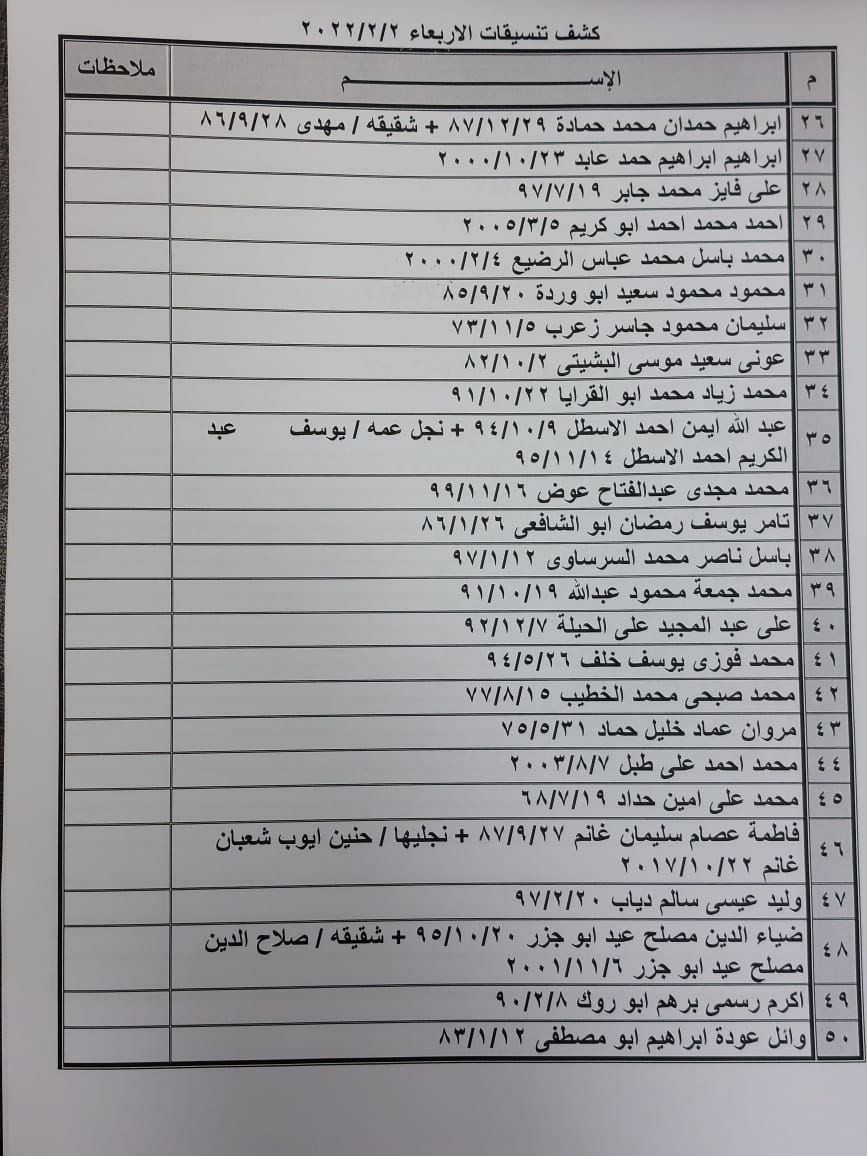 كشف تنسيقات الاربعاء ٢٠٢٢/٢/٢
م الإســـــــــم ملاحظات
٢٦ ابراهيم حمدان محمد حمادة ٨٧/١٢/٢٩ + شقيقه / مهدى ٨٦/٩/٢٨
٢٧ ابراهيم ابراهيم حمد عابد ٢٠٠٠/١٠/٢٣
٢٨ على فايز محمد جابر ٩٧/٧/١٩
٢٩ احمد محمد احمد ابو كريم ٢٠٠٥/٣/٥
٣٠ محمد باسل محمد عباس الرضيع ٢٠٠٠/٢/٤
٣١ محمود محمود سعيد ابو وردة ٨٥/٩/٢٠
٣٢ سليمان محمود جاسر زعرب ٧٣/١١/٥
٣٣ عونى سعيد موسى البشيتى ٨٢/١٠/٢
٣٤ محمد زياد محمد ابو القرايا ٩١/١٠/٢٢
٣٥ عبد الله ايمن احمد الاسطل ٩٤/١٠/٩ + نجل عمه / يوسف عبد
الكريم احمد الاسطل ٩٥/١١/١٤
٣٦ محمد مجدى عبدالفتاح عوض ٩٩/١١/١٦
٣٧ تامر يوسف رمضان ابو الشافعى ٨٦/١/٢٦
٣٨ باسل ناصر محمد السرساوى ٩٧/١/١٢
٣٩ محمد جمعة محمود عبدالله ٩١/١٠/١٩
٤٠ على عبد المجيد على الحيلة ٩٢/١٢/٧
٤١ محمد فوزى يوسف خلف ٩٤/٥/٢٦
٤٢ محمد صبحى محمد الخطيب ٧٧/٨/١٥
٤٣ مروان عماد خليل حماد ٧٥/٥/٣١
٤٤ محمد احمد على طبل ٢٠٠٣/٨/٧
٤٥ محمد على امين حداد ٦٨/٧/١٩
٤٦ فاطمة عصام سليمان غانم ٨٧/٩/٢٧ + نجليها / حنين ايوب شعبان
غانم ٢٠١٧/١٠/٢٢
٤٧ وليد عيسى سالم دياب ٩٧/٢/٢٠
٤٨ ضياء الدين مصلح عيد ابو جزر ٩٥/١٠/٢٠ + شقيقه / صلاح الدين
مصلح عيد ابو جزر ٢٠٠١/١١/٦
٤٩ اكرم رسمى برهم ابو روك ٩٠/٢/٨
٥٠ وائل عودة ابراهيم ابو مصطفى ٨٣/١/١٢